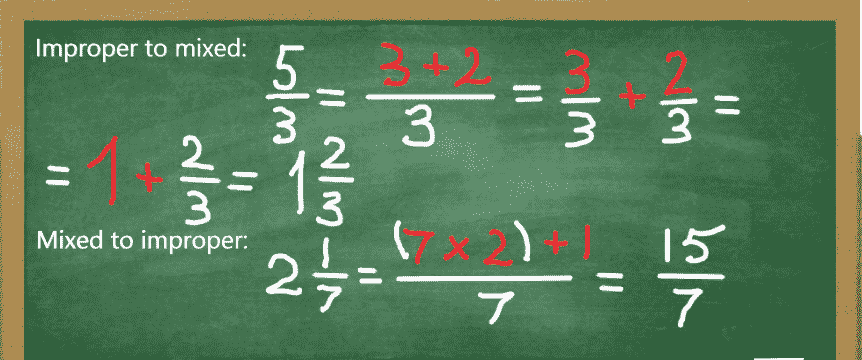 Improper to mixed: 5/3 = (3+2)/3 = 3/3 + 2/3 =
= 1 + 2/3 = 1 2/3
Mixed to improper: 2 1/7 = ((7 x 2) + 1)/7 = 15/7